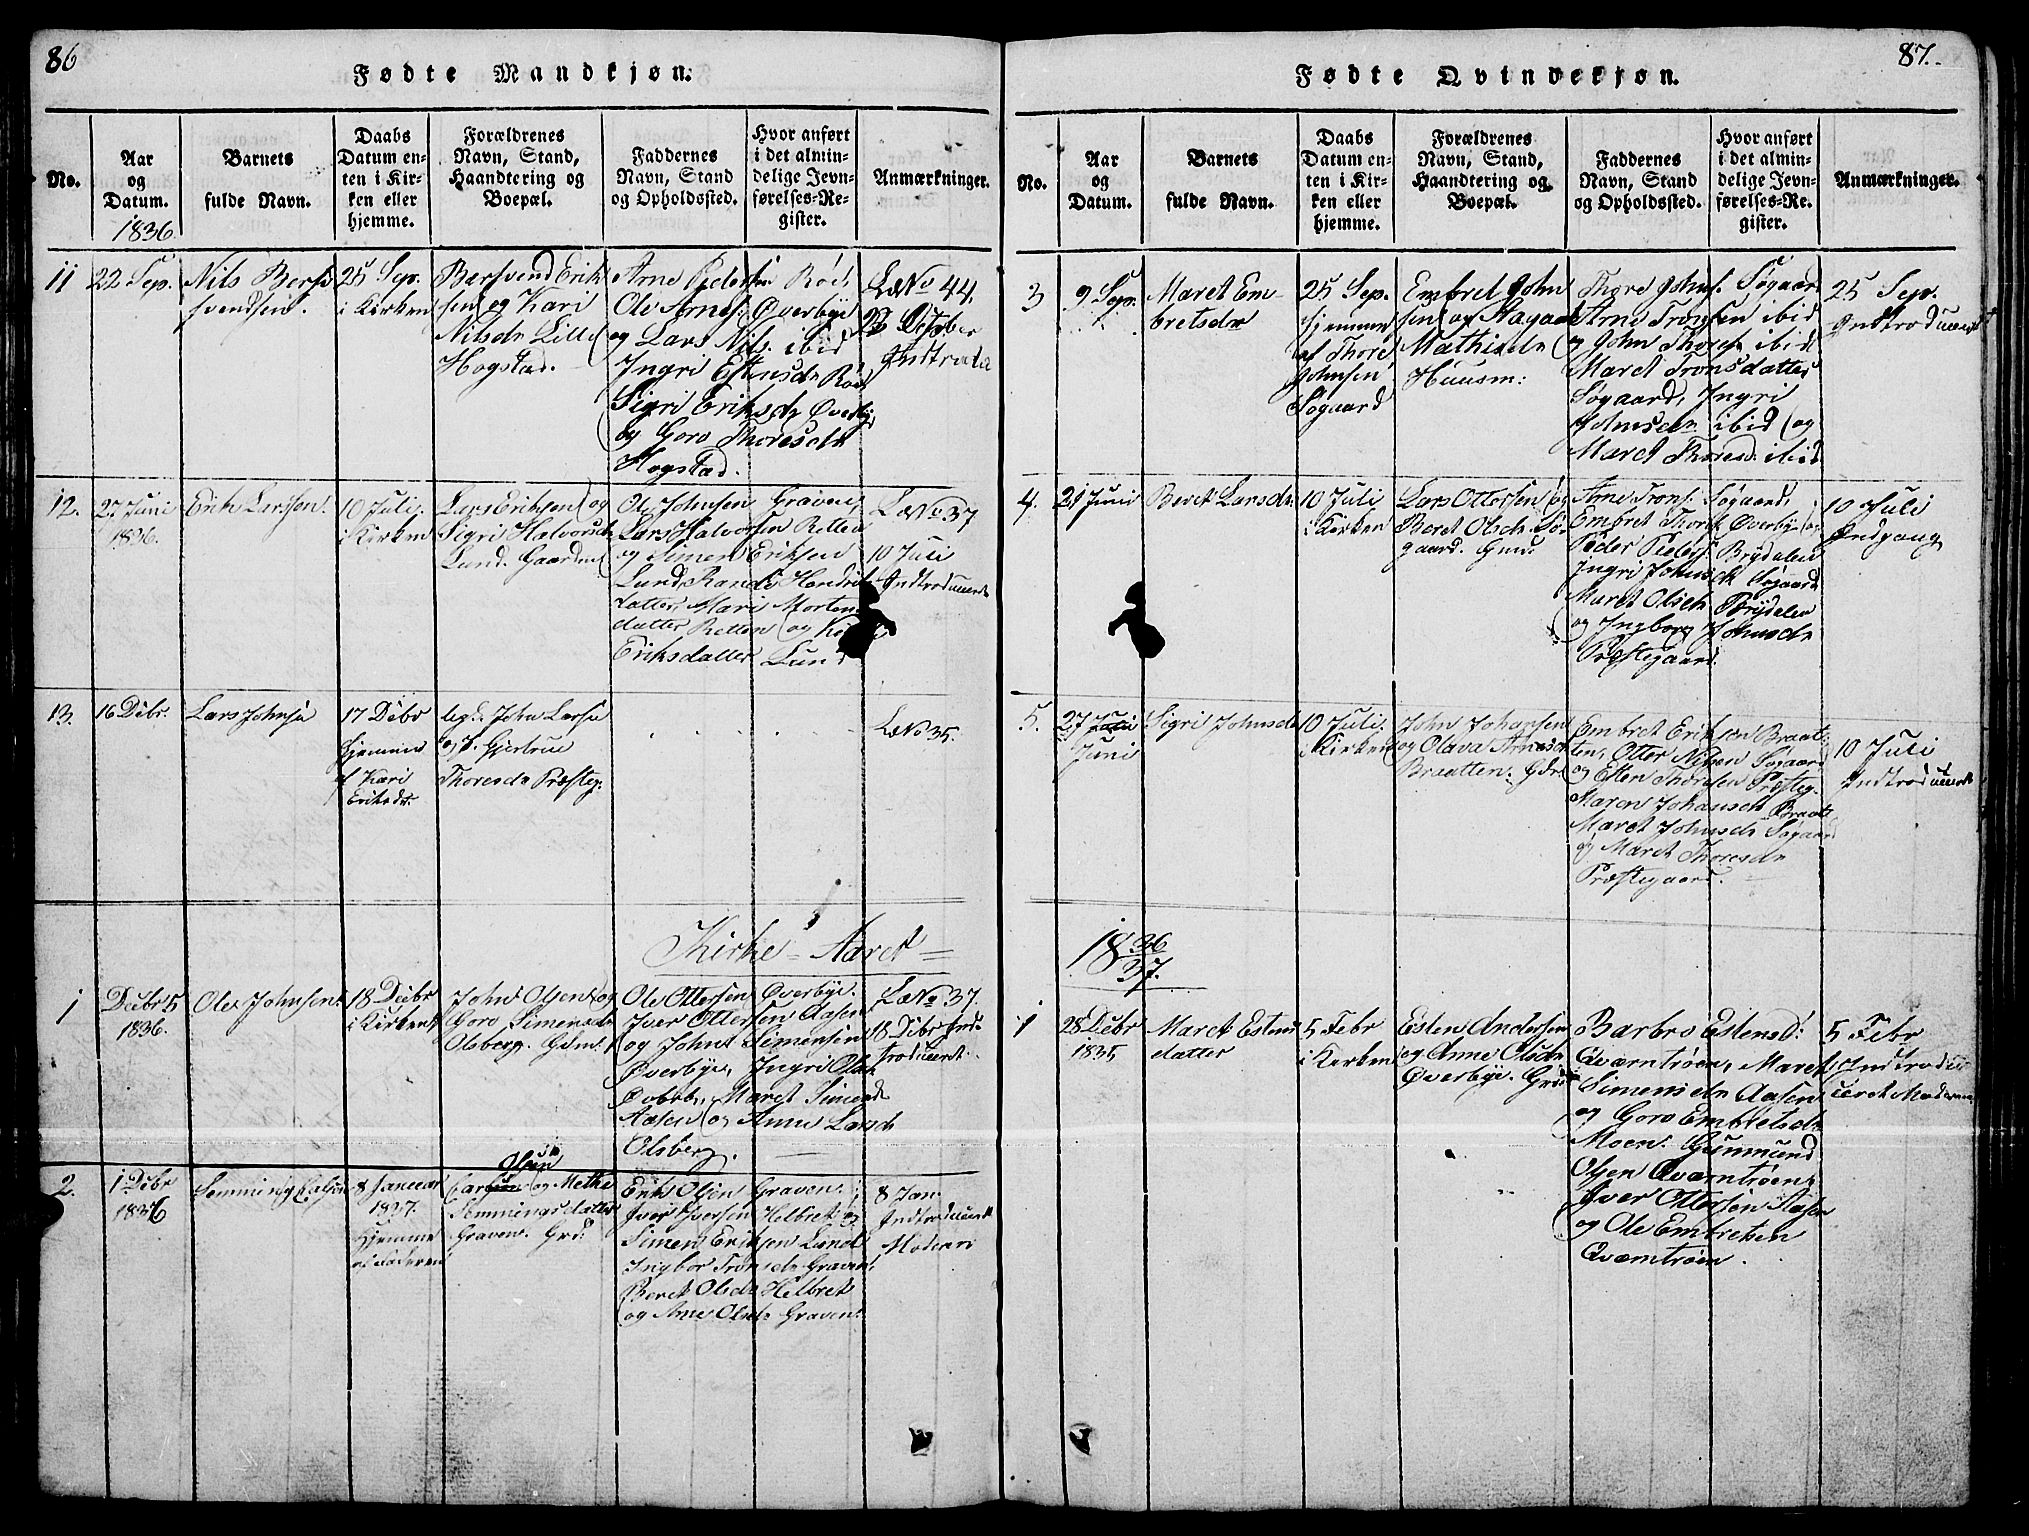 86
Fødte Mandkjøn.
No.
Aar
og
Datum.
1836.
Barnets
fulde Navn.
Daabs
Datum en-
ten i Kir-
ken eller
hjemme.
Forældrenes
Navn, Stand,
Haandtering og
Boepæl.
Faddernes
Navn, Stand
og Opholdssted.
Hvor anført
i det almin-
delige Jevn-
førelses-Re-
gister.
Anmærkninger.
11
22 Sep.
Nils Bersvendsen.
25 Sep.
i Kirken
Bersvend Erik
sen og Kari
Nilsdr Lille
Hogstad.
Arne Pedersen Röe,
Ole Arnes: Øverbye
og Lars Nils. ibid
Ingri Estensdr Röe
Sigri Eriksdr Øverby
og Goro Thoresdr
Hogstad.
L.No 44.
October
12.
27 Juni
1836.
Erik Larssen.
10 Juli
i Kirken
Lars Eriksen og
Sigri Halvorsdr
Lund. Gaardm
Ole Johnsen Graven,
Lars Halvorsen Retten
og Simen Eriksen
Lund, Randi Hendrik
datter, Mari Morten
datter Retten og
Eriksdatter Lund
L.No 37
10 Juli
Indtroduceret
13.
16 Debr.
Lars Johnsen
17 Debr
Hjemme
af Kari
Eriksdr.
John Larsen
Gjertrue
Thoresdr Præsteg:
L.No 35.
Kirke-Aaret
1
Decbr 5
1836.
Ole Johnsen.
18 Decbr
i Kirken
John Olsen og
Goro Simensdr
Olsberg. Gdm.
Ole Ottersen Øverbye.
Iver Ottersen Aasen
og John Simensen
Øverbye, Ingri Olsdr
Maret Simensd
Aasen og Anne Larsdr
Olsberg.
L.No 37.
18 Debr Ind-
troduceret.
2.
1 Debr
1836
Semming Carlsen
8 Januar
1837.
Hjemme
af Faderen
Olsen
og Methe
Semmingsdatter
Graven. Grd:
Erik Olsen Graven,
Iver Iversen Helbret og
Simen Eriksen Lund
Ingbor Tronsdr Graven,
Beret Olsdr Helbret
og Ane Olsdr Graven.
8 Jan.
Indtroduceret
Moderen
87.
Fødte Qvindekjøn.
No.
Aar
og
Datum.
Barnets
fulde Navn.
Daabs
Datum en-
ten i Kir-
ken eller
hjemme.
Forældrenes
Navn, Stand,
Haandtering og
Boepæl.
Faddernes
Navn, Stand
og Opholdssted.
Hvor anført
i det almin-
delige Jevn-
førelses-Re-
gister.
Anmærkninger.
3
9 Sep.
Maret Em-
bretsdr
25 Sep.
hjemme
af Thore
Johnsen
Søgaard
Embret John
sen og
Mathisdr
Huusm:
Thore Johns. Søgaard
Arne Tronsen ibid
og John Thores. ibid
Maret Tronsdatter
Søgaard, Ingri
Johnsdr ibid og
Maret Thoresd. ibid
25 Sep.
Indtroduceret
4.
21 Juni
Beret Larsdr
10 Juli
i Kirken
Lars Ottersen og
Beret Olsdr Sø-
gaard. Gmd.
Arne Trons. Søgaard,
Embret Thores. Øverbye og
Peder Peders. Brydalen
Ingri Johnsdr Søgaard
Maret Olsdr Brydalen
og Ingborg Johnsdr
Præstegaard.
10 Juli
Indgang
5.
27 Juli
Juni
Sigri Johnsdr
10 Juli.
i Kirken
John Johansen
og Olava Arnesdr
Braatten. Gdr
Embret Eriksen Braat-
ten, Otter Nilsen Søgaard
og Esten Thoresen Præsteg.
Maren Johansdr Braatt
Maret Johnsdr Søgaard
og Maret Thoresdr
Præstegaard.
10 Juli
Indtroduceret
18 36/37.
1
28 Debr
1835
Maret Estens
datter
5 Febr
i Kirken
Esten Andersen
og Anne Olsdr
Øverbye. Grd:
Barbro Estensd:
Qværntrøen, Maret
Simensdr Aasen
og Goro Embretsdr
Moen. Gunmund
Olsen Qværntrøen,
Iver Ottersen Aasen
og Ole Embretsen
Qværntrøen.
5 Febr
Indtrodu-
ceret Moderen